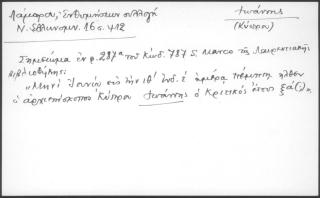 Λάμπρου, Ἐνθυμήσεων συλλογή
Ν. Ἑλληνομν. 16 σ. 412
Ἰωάννης
(Κύπρου)
Σημείωμα ἐν φ. 287α τοῦ κώδ. 787 S. Marco τῆς Λαυρεντιανῆς
βιβλιοθήκης:
"Μηνὶ Ἰουνίῳ εἰς τὴν ιθʹ ἰνδ. εʹ ἡμέρᾳ πέμπτῃ ἦλθεν
ὁ ἀρχιεπίσκοπος Κύπρου Ἰωάννης ὁ Κρητικὸς ἔτους